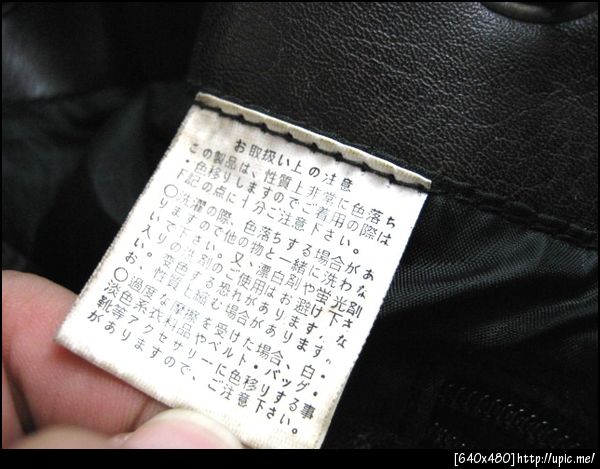 お取扱い上の注意
この製品は、性質上非常に色落ち
・色移りしますのでご着用の際は
下記の点に十分ご注意下さい。
○洗濯の際、色落ちする場合があ
りますので他の物と一緒に洗わな
いで下さい。又、漂白剤や蛍光剤
入りの洗剤のご使用はお避け下さ
い。変色する恐れがあります。な
お、性質上縮む場合があります。
○過度な摩擦を受けた場合、白・
淡色系衣料品やベルト・バッグ・
靴等アクセサリーに色移りする事
がありますので、ご注意下さい。
[640x480]http://upic.me/